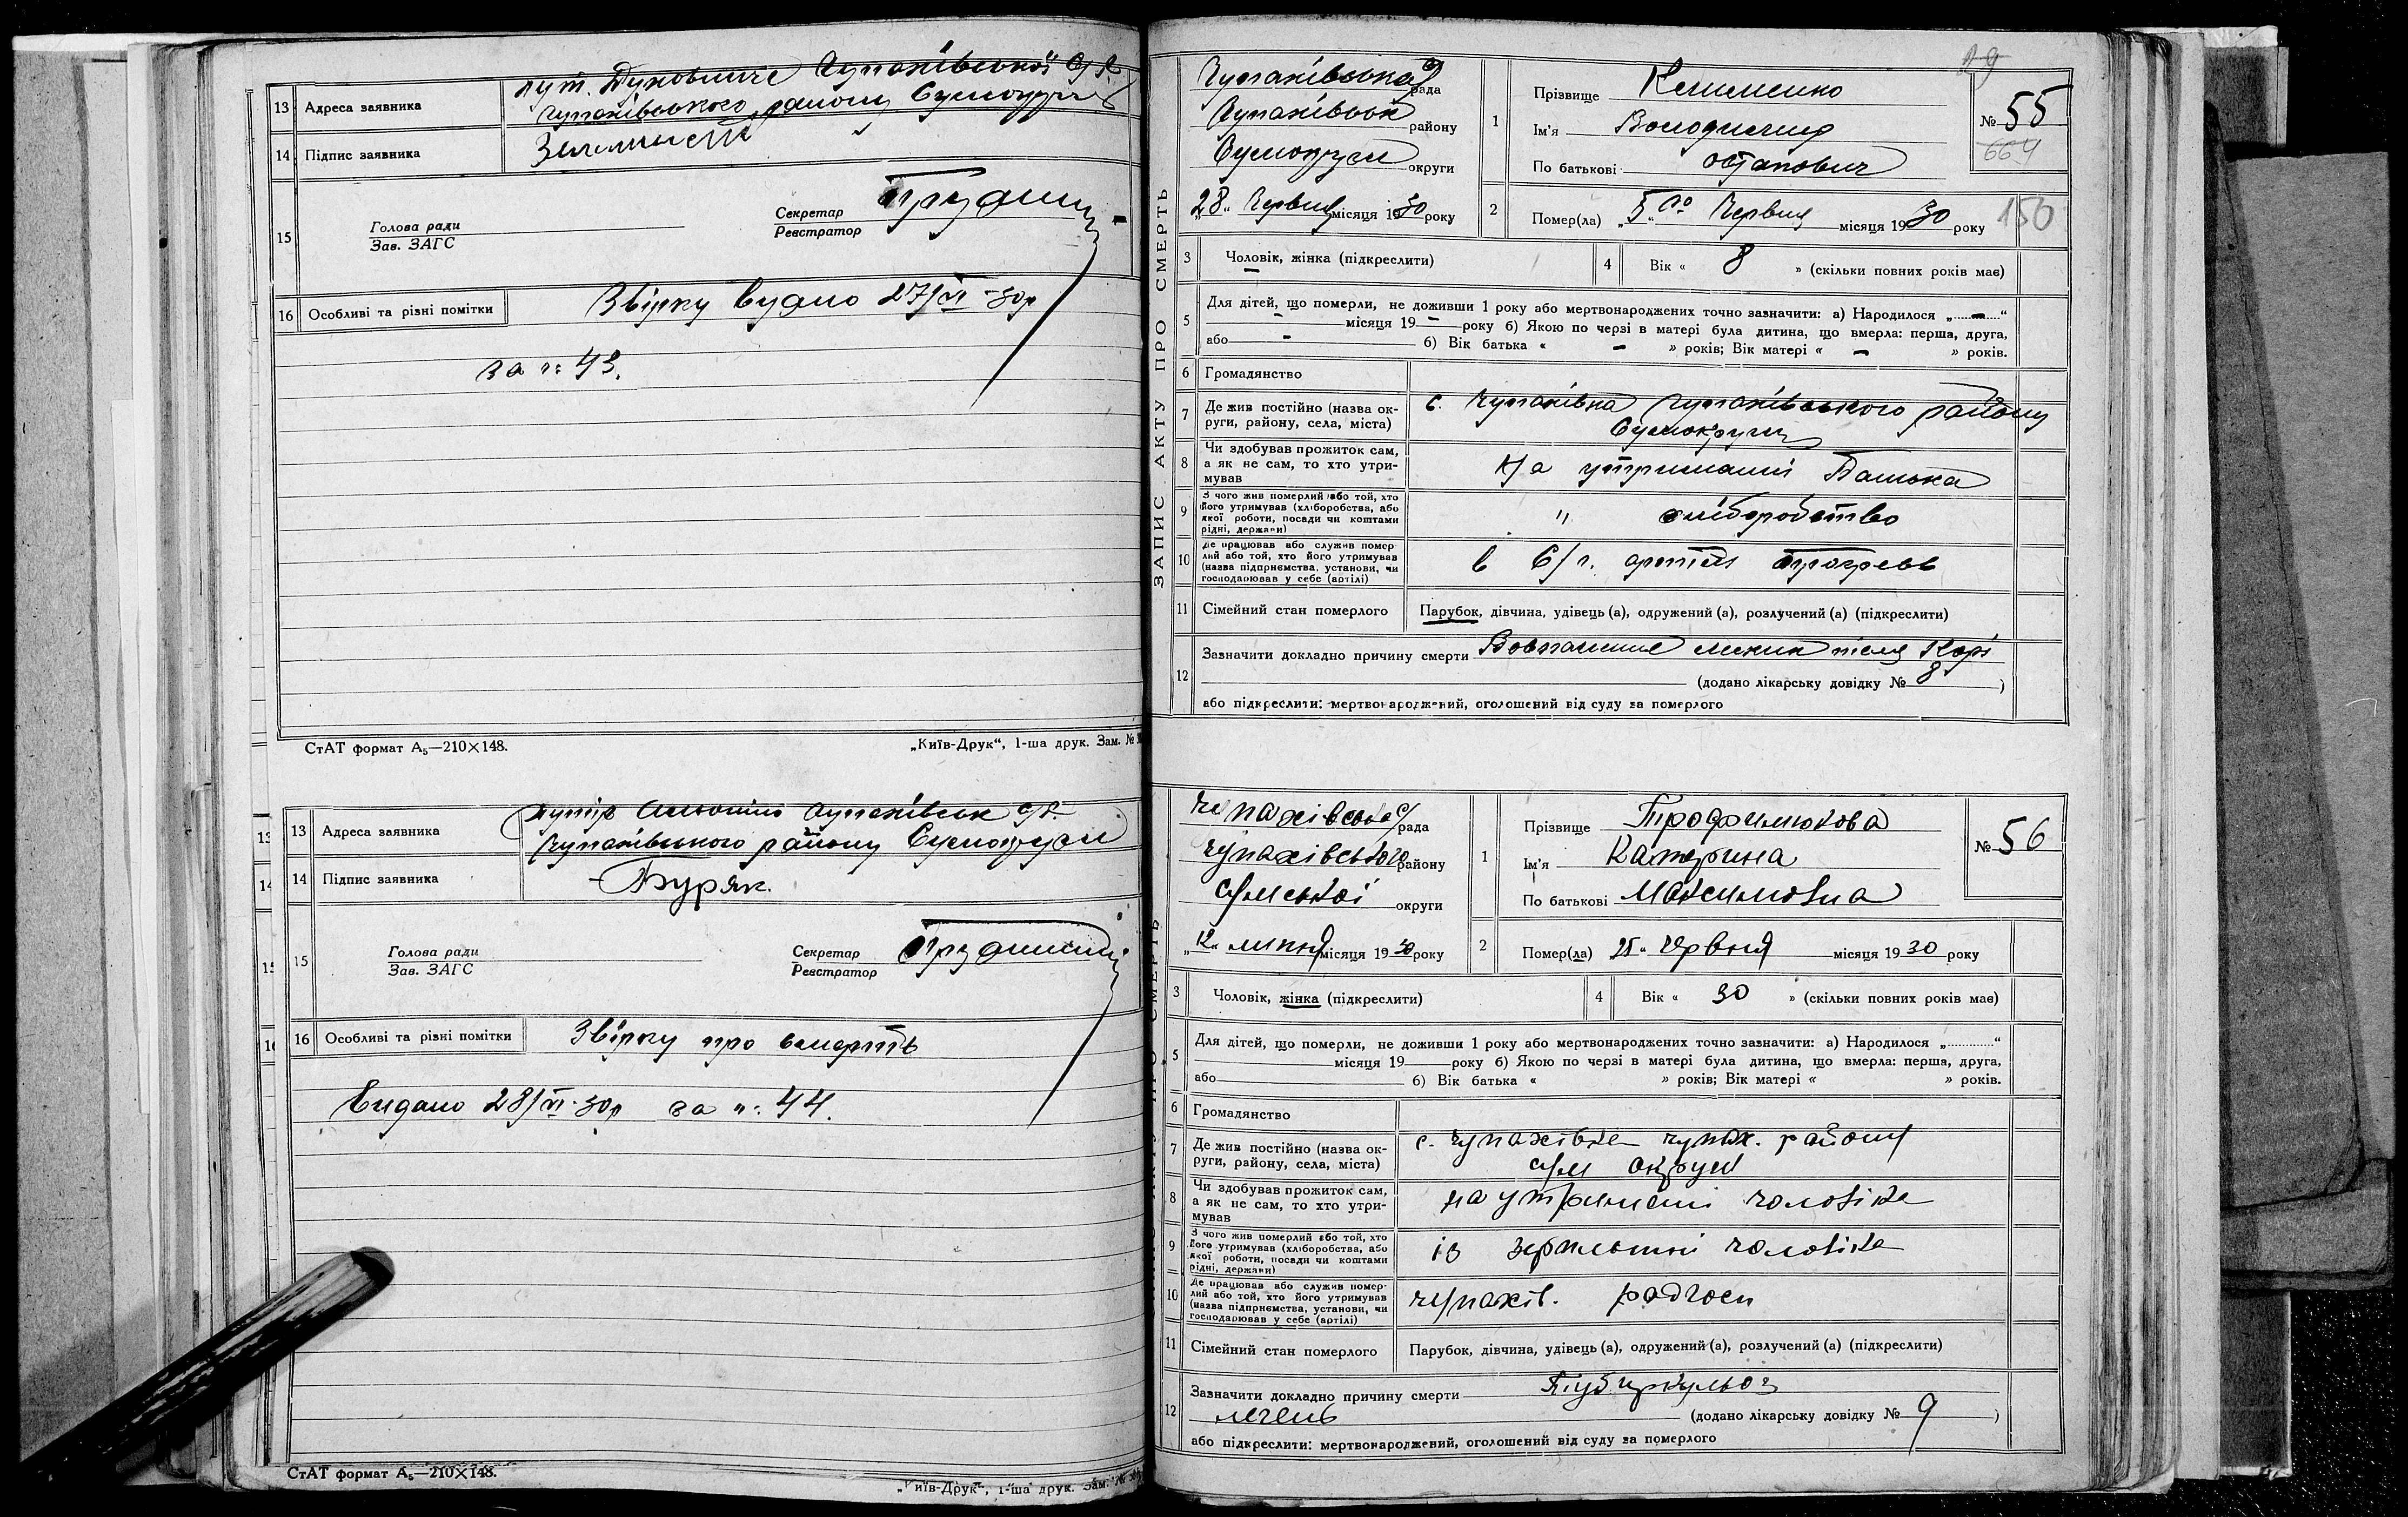 13 Адреса заявника хут. Духовниче Чупахівської с/р.
Чупахівського району Сумокруги
14 Підпис заявника
15 Голова ради
Зав. ЗАГС
Секретар
Реєстратор
16 Особливі та різні помітки Звірку видано 27/VI-30р
за №: 43.
СтАТ формат А₅—210×148.
„Київ-Друк“, 1-ша друк. Зам. №
13 Адреса заявника хутір Чупахівськ с/р.
Чупахівського району Сумокруги
14 Підпис заявника Буряк.
15 Голова ради
Зав. ЗАГС
Секретар
Реєстратор
16 Особливі та різні помітки Звірку про смерть
Видано 28/VI-30р за №: 44.
СтАТ формат А₅—210×148.
„Київ-Друк“, 1-ша друк. Зам. №
ЗАПИС АКТУ ПРО СМЕРТЬ
Чупахівська с/рада
Чупахівськ району
Сумокруги округи
„28“ Червня місяця 1930 року
1 Прізвище Клименко
Ім'я Володимир
По батькові Остапович
№ 55
664
2 Помер(ла) „5“го Червня місяця 1930 року
150
3 Чоловік, жінка (підкреслити)
4 Вік « 8 » (скільки повних років має)
5 Для дітей, що померли, не доживши 1 року або мертвонароджених точно зазначити: а) Народилося „ — “
— місяця 19 — року б) Якою по черзі в матері була дитина, що вмерла: перша, друга,
або — б) Вік батька « — » років; Вік матері « — » років.
6 Громадянство
7 Де жив постійно (назва округи, району, села, міста) с. Чупахівка Чупахівського району
Сумокруги
8 Чи здобував прожиток сам, а як не сам, то хто утримував На утриманні Батька
9 З чого жив померлий або той, хто його утримував (хліборобства, або якої роботи, посади чи коштами рідні, держави) " хліборобство
10 Де працював або служив померлий або той, хто його утримував (назва підприємства, установи, чи господарював у себе (артілі) в С/г. артілі прогресс
11 Сімейний стан померлого Парубок, дівчина, удівець (а), одружений (а), розлучений (а) (підкреслити)
12 Зазначити докладно причину смерти Воспаление після Корі
(додано лікарську довідку № 8 )
або підкреслити: мертвонароджений, оголошений від суду за померлого
Чупахівська с/рада
Чупахівського району
Сумської округи
„12“ липня місяця 1930 року
1 Прізвище Трофимюкова
Ім'я Катерина
По батькові Максимовна
№ 56
2 Помер(ла) 25“ червня місяця 1930 року
3 Чоловік, жінка (підкреслити)
4 Вік « 30 » (скільки повних років має)
5 Для дітей, що померли, не доживши 1 року або мертвонароджених точно зазначити: а) Народилося „ “
місяця 19 року б) Якою по черзі в матері була дитина, що вмерла: перша, друга,
або б) Вік батька « » років; Вік матері « » років.
6 Громадянство
7 Де жив постійно (назва округи, району, села, міста) с. Чупахівка чупах. району
сум округи
8 Чи здобував прожиток сам, а як не сам, то хто утримував на утриманні чоловіка
9 З чого жив померлий або той, хто його утримував (хліборобства, або якої роботи, посади чи коштами рідні, держави) із зарплатні чоловіка
10 Де працював або служив померлий або той, хто його утримував (назва підприємства, установи, чи господарював у себе (артілі) чупахів. радгосп
11 Сімейний стан померлого Парубок, дівчина, удівець (а), одружений (а), розлучений (а) (підкреслити)
12 Зазначити докладно причину смерти Туберкульоз
легень (додано лікарську довідку № 9 )
або підкреслити: мертвонароджений, оголошений від суду за померлого